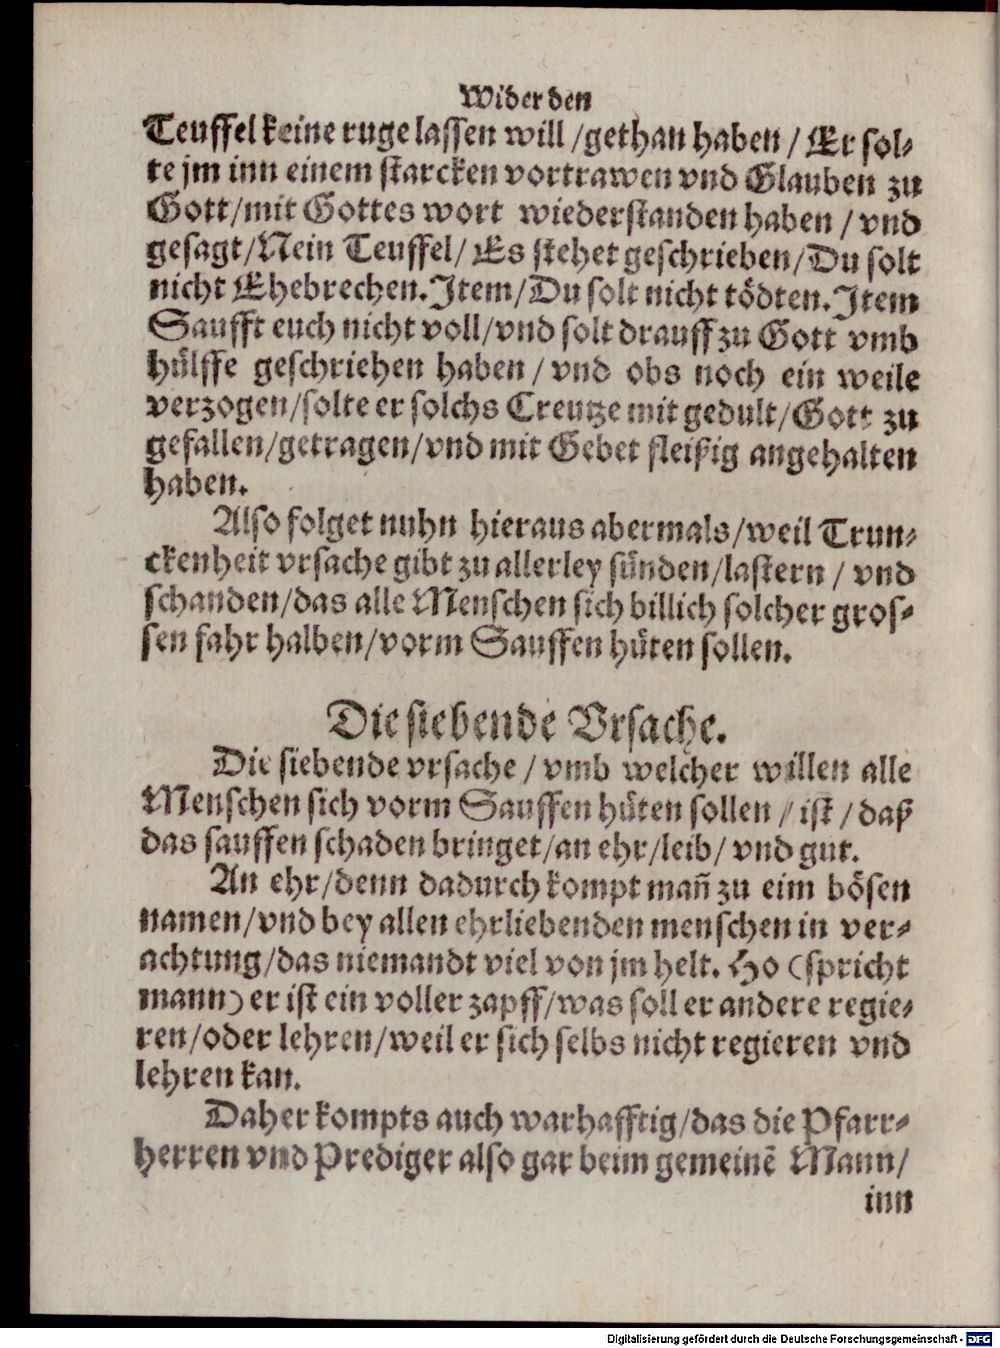 Wider den
Teuffel keine ruge lassen will /gethan haben / Er sol-
te jm inn einem starcken vortrawen vnd Glauben zu
Gott/mit Gottes wort wiederstanden haben / vnd
gesagt/Nein Teuffel/ Es stehet geschrieben/Du solt
nicht Ehebrechen. Item/Du solt nicht tödten. Item
Saufft euch nicht voll/vnd solt drauff zu Gott vmb
hülffe geschriehen haben / vnd obs noch ein weile
verzogen/solte er solchs Creutze mit gedult/Gott zu
gefallen/getragen/vnd mit Gebet fleißig angehalten
haben.
Also folget nuhn hieraus abermals/weil Trun-
ckenheit vrsache gibt zu allerley sünden/lastern / vnd
schanden/das alle Menschen sich billich solcher gros-
sen fahr halben/vorm Sauffen hüten sollen.
Die siebende Vrsache.
Die siebende vrsache / vmb welcher willen alle
Menschen sich vorm Sauffen hüten sollen / ist / daß
das sauffen schaden bringet/an ehr/leib/ vnd gut.
An ehr/denn dadurch kompt mañ zu eim bösen
namen/vnd bey allen ehrliebenden menschen in ver-
achtung/das niemandt viel von jm helt. Ho (spricht
mann) er ist ein voller zapff/was soll er andere regie-
ren/oder lehren/weil er sich selbs nicht regieren vnd
lehren kan.
Daher kompts auch warhafftig/das die Pfarr-
herren vnd Prediger also gar beim gemeinē Mann/
inn
Digitalisierung gefördert durch die Deutsche Forschungsgemeinschaft - DFG